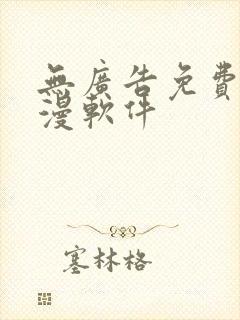 無廣告免費
漫軟件
塞林格